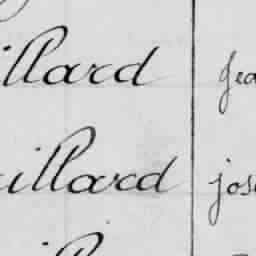 illard Jea
uillard jos